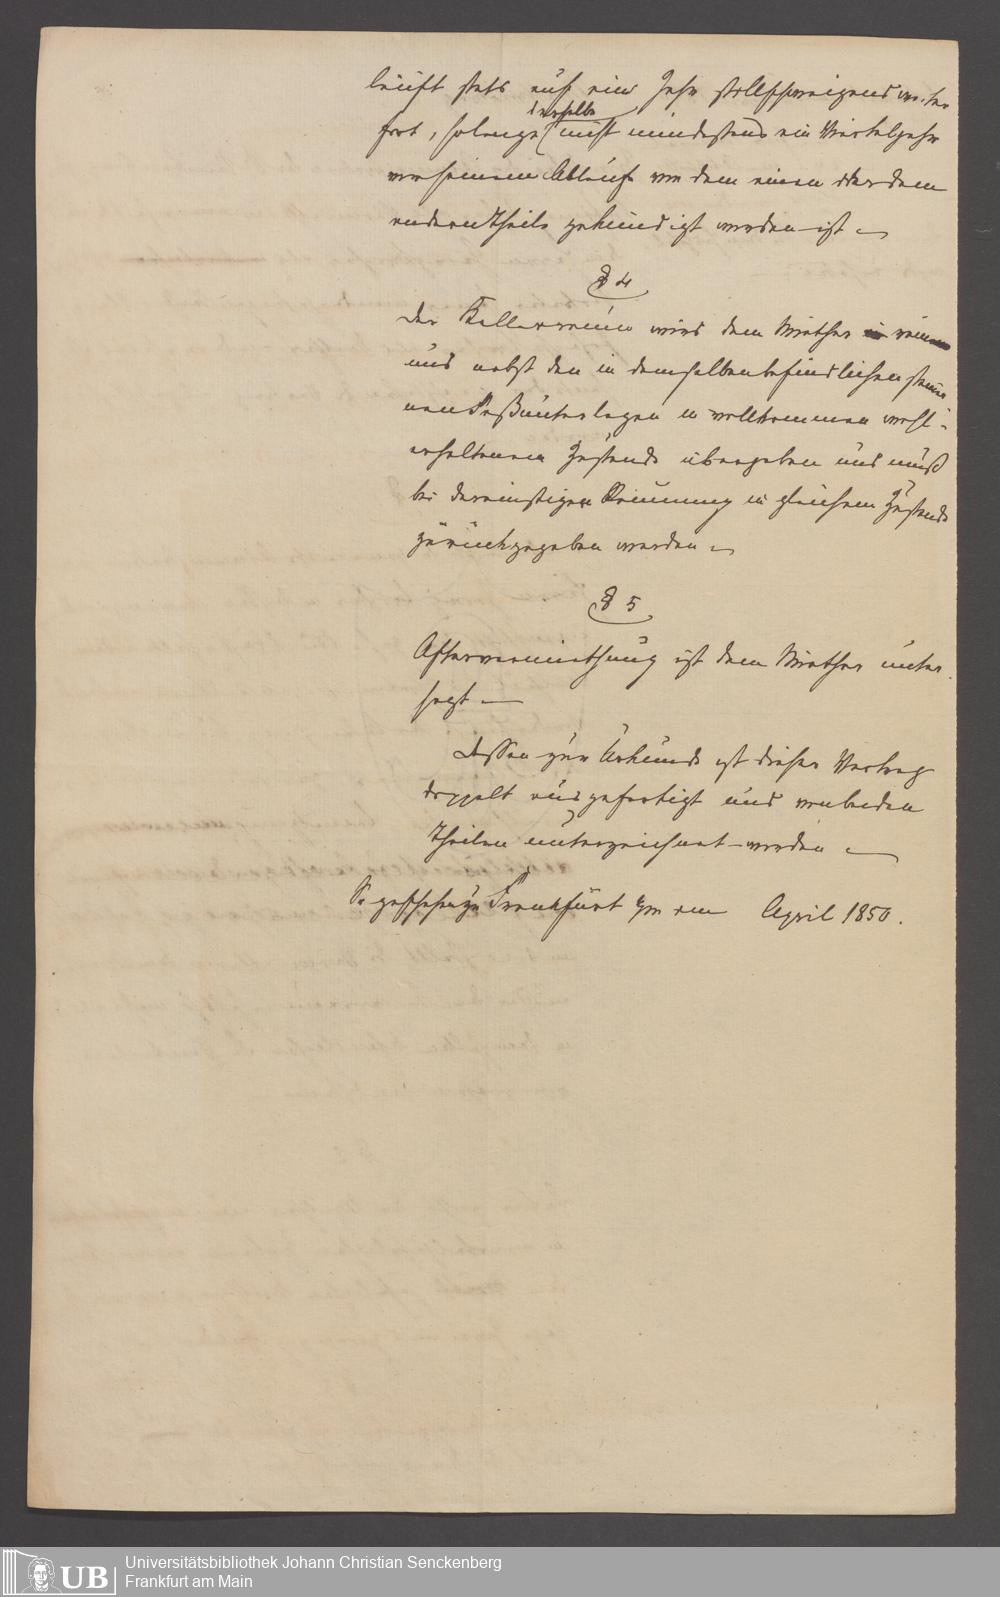 läuft stets auf ein Jahr stillschweigend weiter
fort, solange derselbe nicht mindestens ein Vierteljahr
vor seinem Ablauf von dem einen oder dem
anderen Theile gekündigt worden ist.
§ 4
Der Kellerraum wird dem Miether rein
und nebst den in demselben befindlichen steiner
nen Faßunterlagen in vollkommen wohl-
erhaltenem Zustande übergeben und muß
bei dereinstiger Räumung in gleichem Zustande
zurückgegeben werden.
§ 5
Aftervermiethung ist dem Miether unter-
sagt.
Dessen zur Urkunde ist dieser Vertrag
doppelt ausgefertigt und von beiden
Theilen unterzeichnet worden.
So geschehen zu Frankfurt a/m am April 1850.
UB
Universitätsbibliothek Johann Christian Senckenberg
Frankfurt am Main